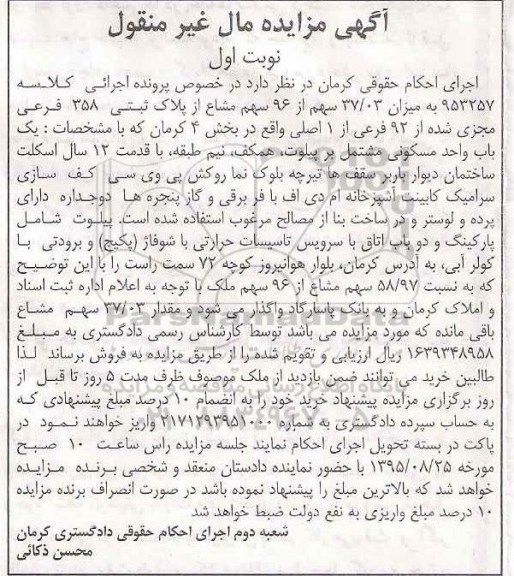 آگهی مزایده مال غیر منقول
نوبت اول
اجرای احکام حقوقی کرمان در نظر دارد در خصوص پرونده اجرائی کلاسه
۹۵۳۲۵۷ به میزان ۳۷/۰۳ سهم از ۹۶ سهم مشاع از پلاک ثبتی ۳۵۸ فرعی
مجزی شده از ۹۲ فرعی از ۱ اصلی واقع در بخش ۴ کرمان که با مشخصات : یک
باب واحد مسکونی مشتمل بر پیلوت، همکف، نیم طبقه، با قدمت ۱۲ سال اسکلت
ساختمان دیوار باربر سقف ها تیرچه بلوک نما روکش پی وی سی کف سازی
سرامیک کابینت آشپزخانه ام دی اف با فر برقی و گاز پنجره ها دوجداره دارای
پرده و لوستر و در ساخت بنا از مصالح مرغوب استفاده شده است. پیلوت شامل
پارکینگ و دو باب اتاق با سرویس تاسیسات حرارتی با شوفاژ (پکیج) و برودتی با
کولر آبی، به آدرس کرمان، بلوار هوانیروز کوچه ۷۲ سمت راست را با این توضیح
که به نسبت ۵۸/۹۷ سهم مشاع از ۹۶ سهم ملک با توجه به اعلام اداره ثبت اسناد
و املاک کرمان رو به بانک پاسارگاد واگذار می شود و مقدار ۳۷/۰۳ سهم مشاع
باقی مانده که مورد مزایده می باشد توسط کارشناس رسمی دادگستری به مبلغ
۱۶۳۹۳۴۸۹۵۸ ریال ارزیابی و تقویم شده را از طریق مزایده به فروش برساند لذا
طالبین خرید می توانند ضمن بازدید از ملک موصوف ظرف مدت ۵ روز تا قبل از
روز برگزاری مزایده پیشنهاد خرید خود را به انضمام ۱۰ درصد مبلغ پیشنهادی که
به حساب سپرده دادگستری به شماره ۲۱۷۱۲۹۳۹۵۱۰۰۰ واریز خواهند نمود در
پاکت در بسته تحویل اجرای احکام نمایند جلسه مزایده راس ساعت ۱۰ صبح
مورخه ۱۳۹۵/۰۸/۲۵ با حضور نماینده دادستان منعقد و شخصی برنده مزایده
خواهد شد که بالاترین مبلغ را پیشنهاد نموده باشد در صورت انصراف برنده مزایده
۱۰ درصد مبلغ واریزی به نفع دولت ضبط خواهد شد
شعبه دوم اجرای احکام حقوقی دادگستری کرمان
محسن ذکائی